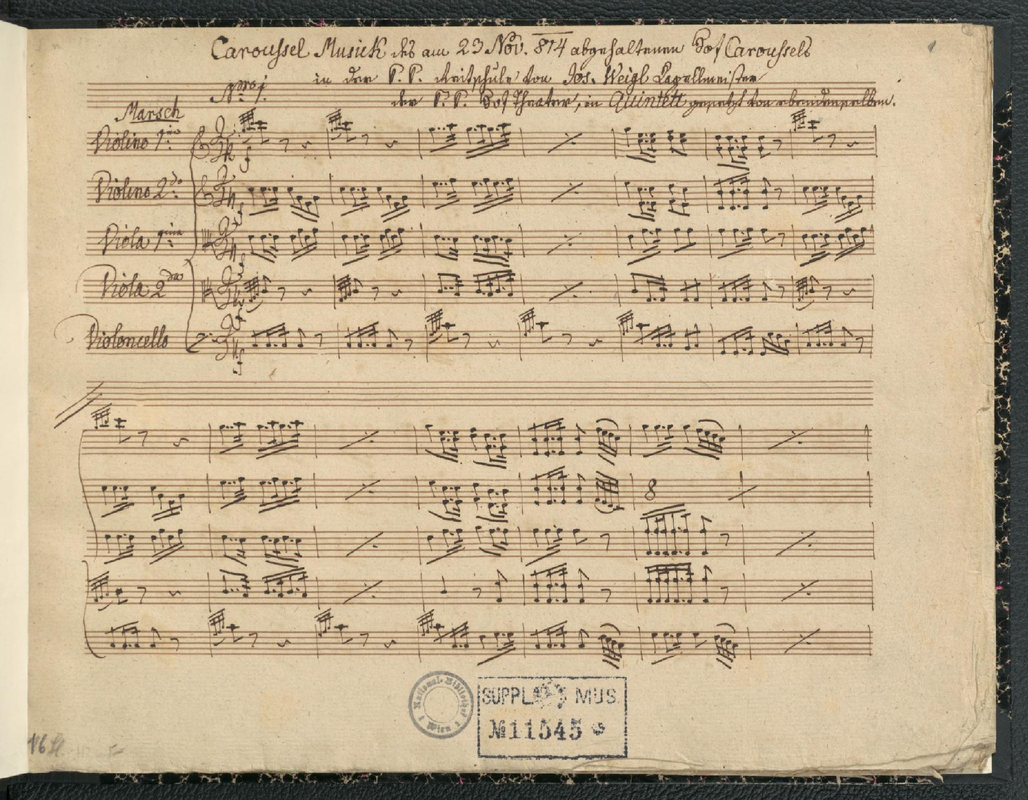 Caroussel Musick des am 23 Nov. 814 abgehaltenen Hof Caroussels
in der K. K. Reitschule von Jos. Weigl Kapellmeister
der K. K. Hof Theater, in Quintett gesetzt von ebendemselben.
Nro 1.
Marsch
Violino 1mo
Violino 2do
Viola 1ma
Viola 2da
Violoncello
f
8
National-Bibliothek Wien
SUPPL. MUS.
№ 11545
16